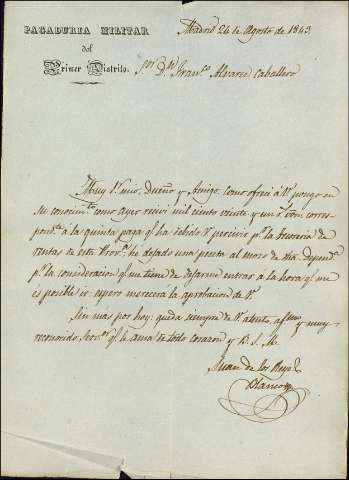 PAGADURIA MILITAR
del
Primer Distrito.
Madrid 24 de Agosto de 1843
Sor. Dn. Franco. Alvarez Caballero
Muy Sr. mio, Dueño y Amigo. Como ofrecí a V. pongo en
su conocimto. como ayer recivi mil ciento veinte y un rs. von. corres-
pondtes. a la quinta paga qe. ha debido V. percivir pr. la tesoreria de
rentas de esta Prova. he dejado una peseta al mozo de
pr. la consideracion qe. me tiene de dejarme entrar a la hora qe. me
es posible ir. espero merecerá la aprobacion de V.
Sin mas por hoy; queda siempre de V. atento, afmo. y muy
reconocido Servor. qe. le ama de todo corazon y B. S. M.
Juan de los Reyes
Blanco